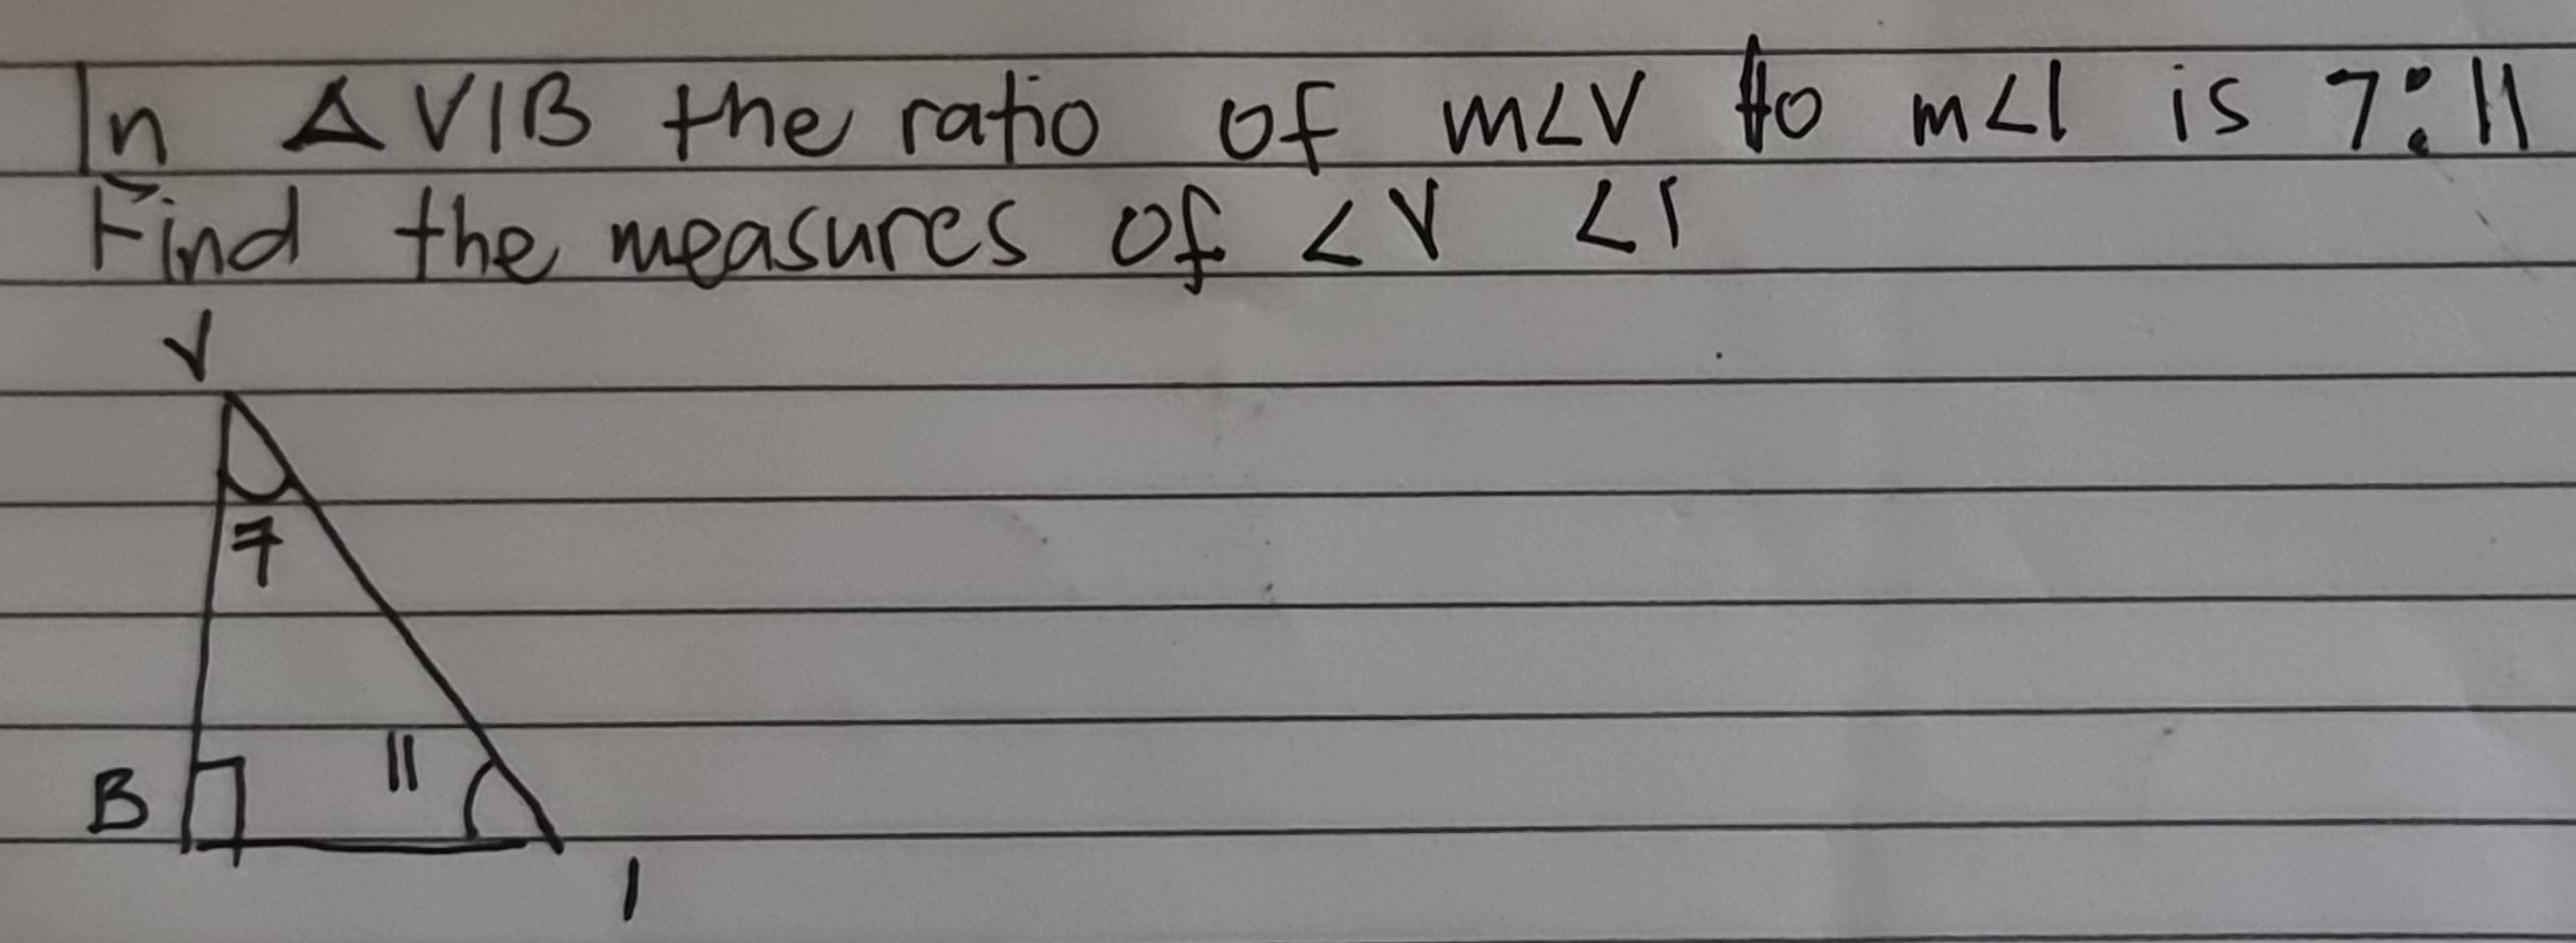 In △VIB the ratio of m∠V to m∠I is 7:11
Find the measures of ∠V ∠I
V
7
11
B
I